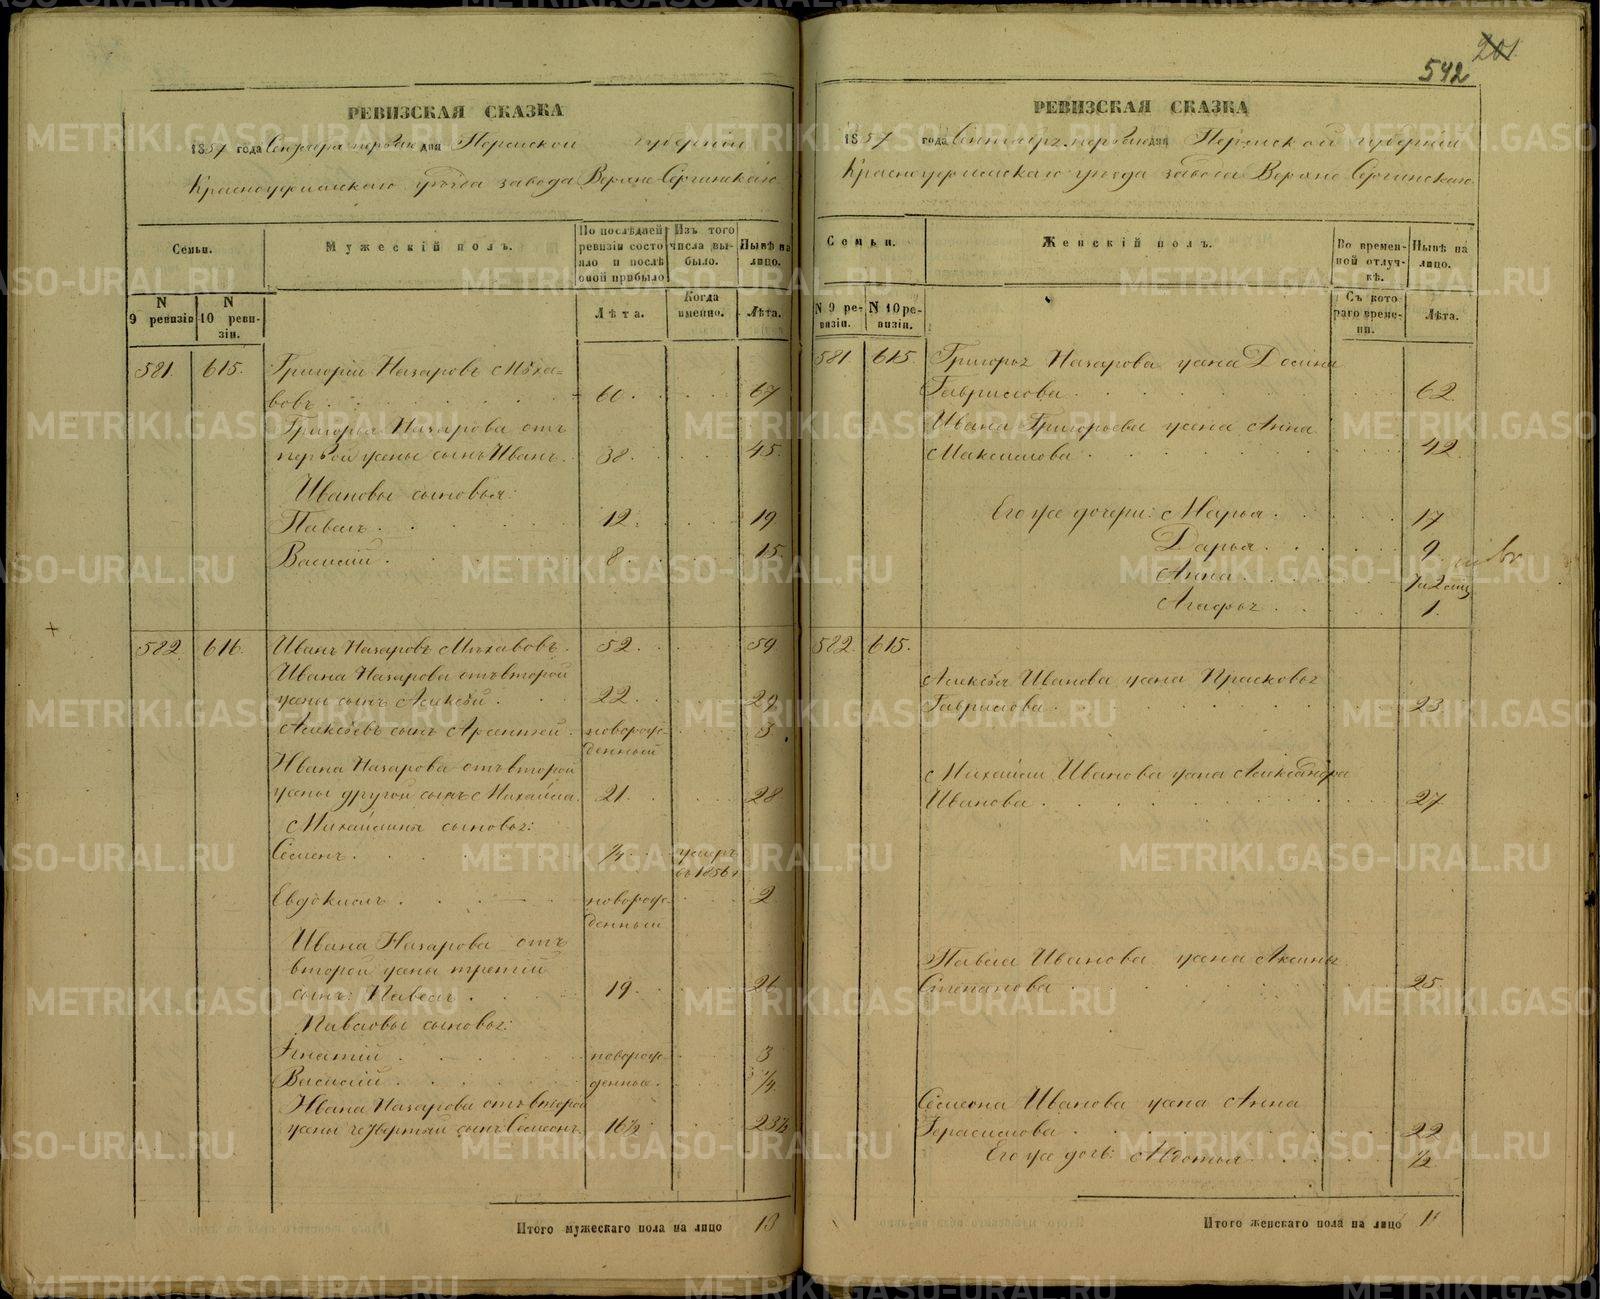 201.
542
РЕВИЗСКАЯ СКАЗКА
1857 года Сентября первый дня Пермской губерніи
Красноуфимскаго уѣзда завода Верхне Сергинскаго
Семьи.
Мужескій полъ.
По послѣдней ревизіи состояло и послѣ оной прибыло
Изъ того числа выбыло.
Нынѣ на лицо.
N 9 ревизіи
N 10 ревизіи.
Лѣта.
Когда именно.
Лѣта.
581. 615. Григорій Назаровъ Мѣха=
вовъ. 60. 67
Григорья Назарова отъ
первой жены сынъ Иванъ. 38. 45.
Ивановы сыновья:
Павелъ. 12. 19.
Василій. 8. 15.
582. 616. Иванъ Назаровъ Мѣхавовъ. 52. 59
Ивана Назарова отъ второй
жены сынъ Алексѣй. 22. 29.
Алексѣевъ сынъ Арсентей. новорож-
денный 3.
Ивана Назарова отъ второй
жены другой сынъ Михайла. 21. 28
Михайлины сыновья:
Семенъ. 1/4. умеръ
въ 1856 г.
Евдокимъ. новорож-
денный 2
Ивана Назарова отъ
второй жены третій
сынъ: Павелъ. 19. 26
Павловы сыновья:
Игнатій. новорож- 3
Василій. денные. 1/4.
Ивана Назарова отъ второй
жены четвертый сынъ Семенъ. 16 1/2 23 1/2
Итого мужескаго пола на лицо 13
РЕВИЗСКАЯ СКАЗКА
1857 года Сентября первый дня Пермской губерніи
Красноуфимскаго уѣзда завода Верхне Сергинскаго
Семьи.
Женскій полъ.
Во временной отлучкѣ.
Нынѣ на лицо.
N 9 ревизіи.
N 10 ревизіи.
Съ котораго времени.
Лѣта.
581 615. Григорья Назарова жена Домна
Гаврилова. 62.
Ивана Григорьева жена Анна
Максимова. 42.
Его же дочери: Марья. 17
Дарья. 9.
Анна. 7 и 2 мѣс
Агафья. 1.
582. 615.
Алексѣя Иванова жена Прасковья
Гаврилова. 23.
Михайлы Иванова жена Александра
Иванова. 27.
Павла Иванова жена Аксинья
Степанова. 25.
Семеона Иванова жена Анна
Герасимова. 22
Его же дочь: Авдотья. 1/2
Итого женскаго пола на лицо 11
METRIKI.GASO-URAL.RU